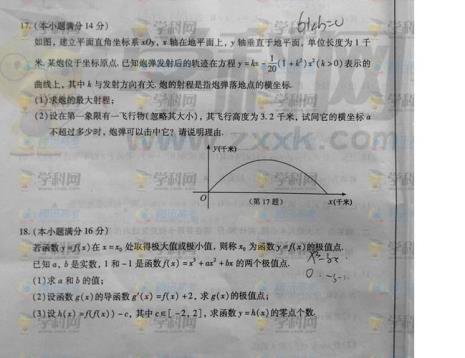 6+ab=0
17.(本小题满分14分)
如图,建立平面直角坐标系xOy,x轴在地平面上,y轴垂直于地平面,单位长度为1千
米.某炮位于坐标原点.已知炮弹发射后的轨迹在方程y=kx-1/20(1+k²)x²(k>0)表示的
曲线上,其中k与发射方向有关.炮的射程是指炮弹落地点的横坐标.
(1)求炮的最大射程;
(2)设在第一象限有一飞行物(忽略其大小),其飞行高度为3.2千米,试问它的横坐标a
不超过多少时,炮弹可以击中它?请说明理由.
y(千米)
O
(第17题)
x(千米)
18.(本小题满分16分)
若函数y=f(x)在x=x₀处取得极大值或极小值,则称x₀为函数y=f(x)的极值点.
已知a,b是实数,1和-1是函数f(x)=x³+ax²+bx的两个极值点.
x³-3x
(1)求a和b的值;
(2)设函数g(x)的导函数g′(x)=f(x)+2,求g(x)的极值点;
(3)设h(x)=f(f(x))-c,其中c∈[-2,2],求函数y=h(x)的零点个数.
学科网
www.zxxk.com